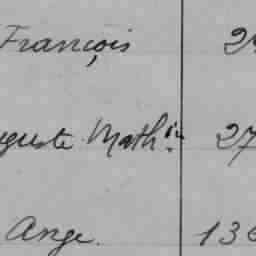 François 2
guste Math.in 27
Ange. 136